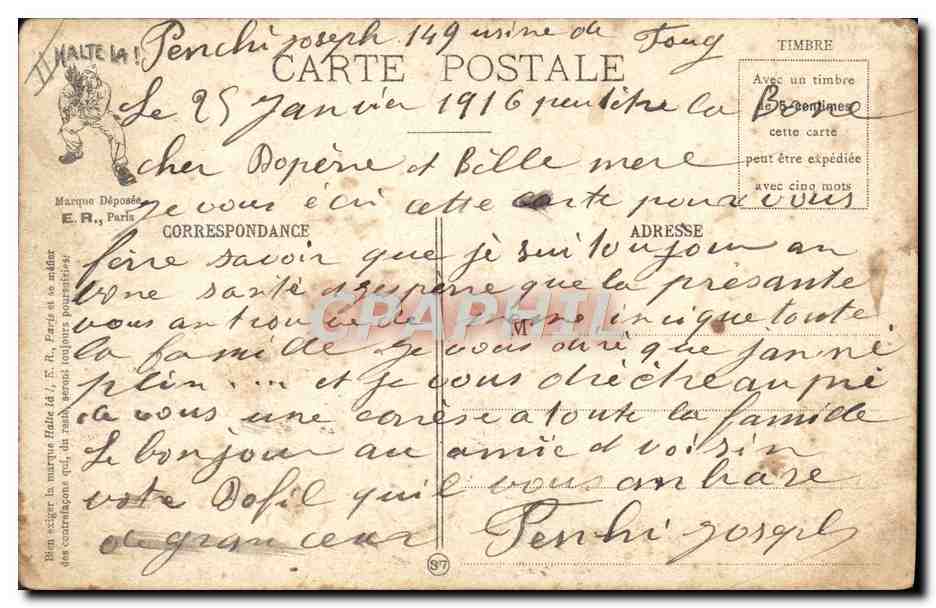 HALTE LÀ !
Penchi joseph 149 usine de Foug
CARTE POSTALE
TIMBRE
Avec un timbre
de 5 centimes
cette carte
peut être expédiée
avec cinq mots
Le 25 Janvier 1916 peu être la Bone
cher Bopère et Bélle mere
Marque Déposée
E.R., Paris
je vous écri cette carte pour vous
CORRESPONDANCE
ADRESSE
fère savoir que jè sui toujour an
bone santé et gespère que la présante
vous an trouve de mème incique toute
CPARPHIL
M
la famille Je vous diré que jan né
plin ... et je vous
de vous une a toute la famille
Le bonjour au amie d voisin
vote Bofil quil vous anbrase
de gran ceur Penhi joseph
37
Bien exiger la marque Halte là !, E. R., Paris et se méfier
des contrefaçons qui, du reste, seront toujours poursuivies.